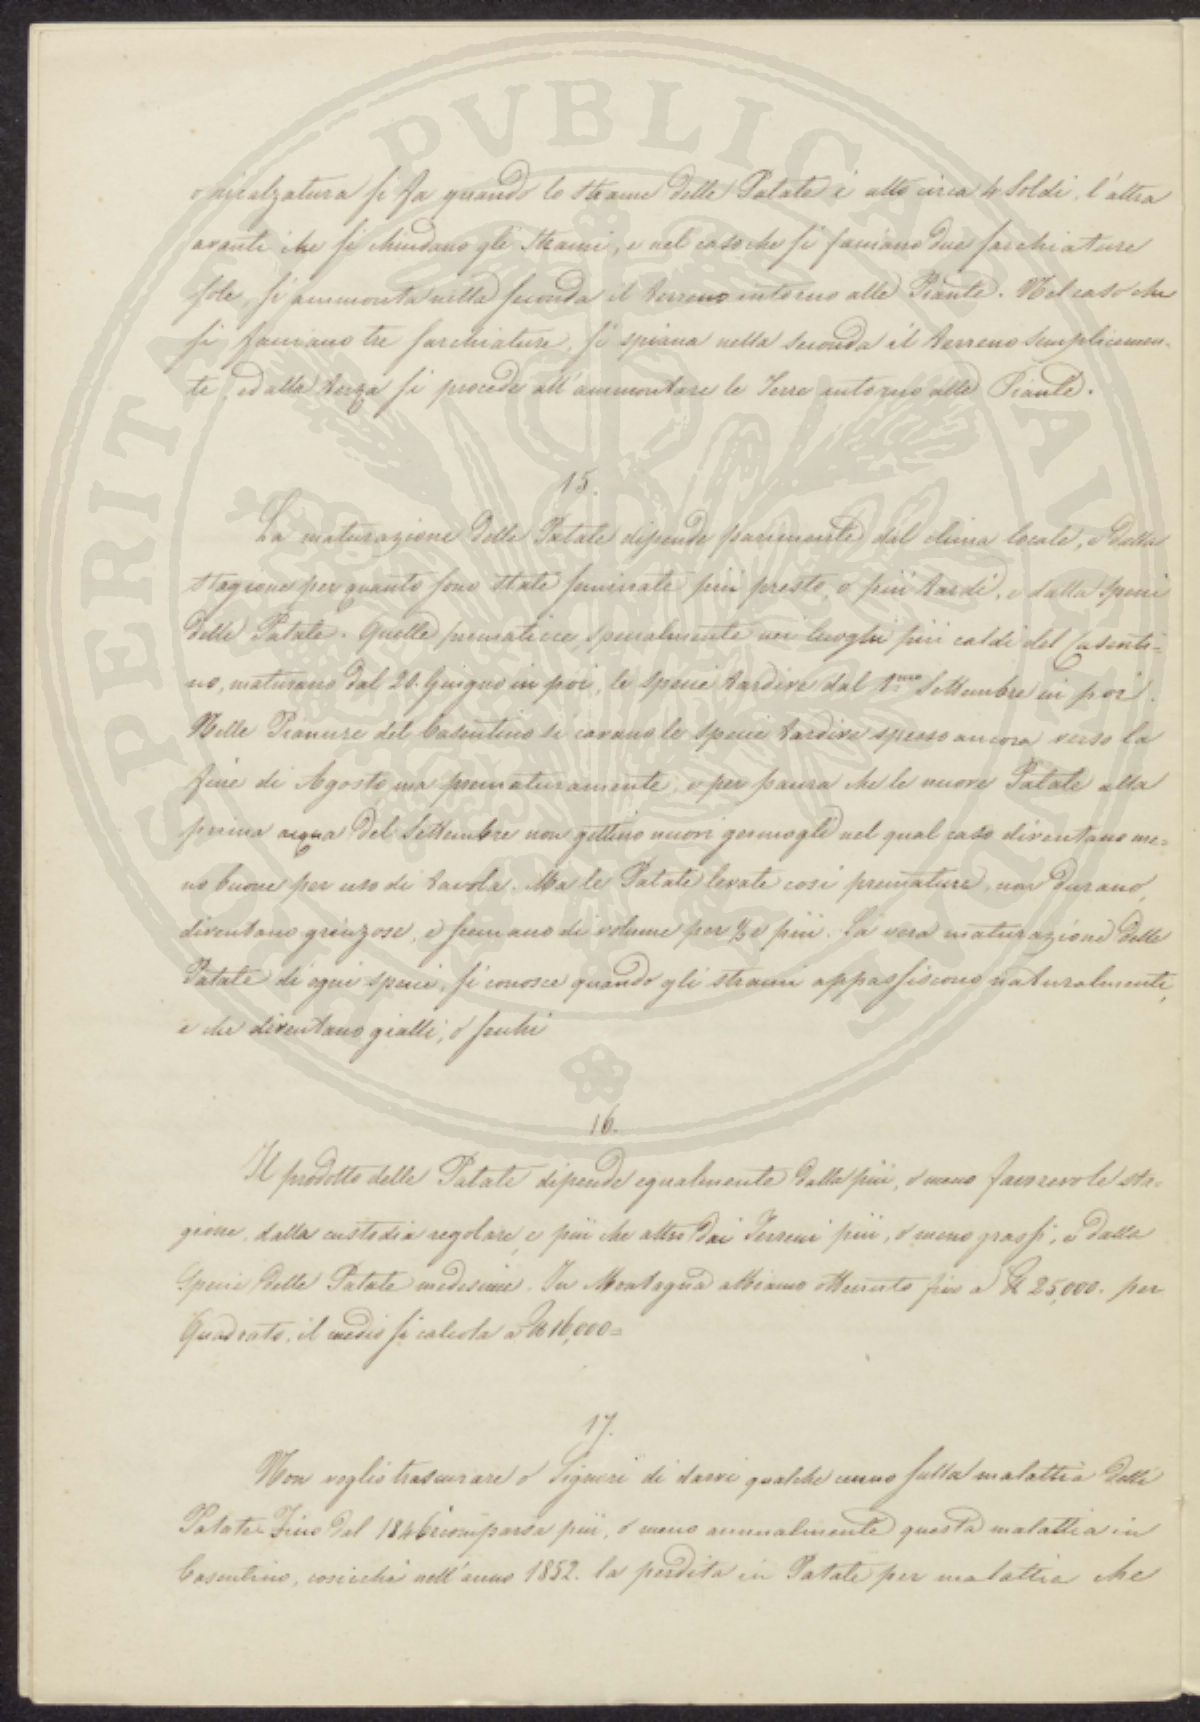 o rincalzatura si fa quando lo strame delle Patate è alto circa 4 Soldi, l'altra
avanti che si chiudano gli strami, e nel caso che si facciano due sarchiature
sole, si ammonta nella seconda il terreno intorno alle Piante. Nel caso che
si facciano tre sarchiature, si spiana nella seconda il terreno semplicemen-
te, ed alla terza si procede all'ammontare le Terre intorno alle Piante.
15.
La maturazione delle Patate dipende parimente dal clima locale, e dalla
stagione per quanto sono state seminate più presto, o più tardi, e dalla specie
delle Patate. Quelle primaticce, specialmente nei luoghi più caldi del Casenti-
no, maturano dal 20. Giugno in poi, le specie tardive dal 1.mo Settembre in poi.
Nelle Pianure del Casentino si cavano le specie tardive spesso ancora verso la
fine di Agosto, ma prematuramente, o per paura che le nuove Patate alla
prima acqua del Settembre non gettino nuovi germogli nel qual caso diventano me-
no buone per uso di tavola. Ma le Patate levate così premature, non durano,
diventano grinzose, e scemano di volume per ⅓ e più. La vera maturazione delle
Patate di ogni specie, si conosce quando gli strami appassiscono naturalmente,
e che diventano gialli, o secchi
16.
Il prodotto delle Patate dipende egualmente dalla più, o meno favorevole sta-
gione, dalla custodia regolare, e più che altro dai Terreni più, o meno grassi, e dalla
Specie delle Patate medesime. In Montagna abbiamo ottenuto fino a ℔ 25,000. per
Quadrato, il medio si calcola a ℔ 16,000=
17.
Non voglio trascurare o Signori di darvi qualche cenno sulla malattia delle
Patate. Fino dal 1846 ricomparsa più, o meno annualmente questa malattia in
Casentino, cosicchè nell'anno 1852. la perdita in Patate per malattia che